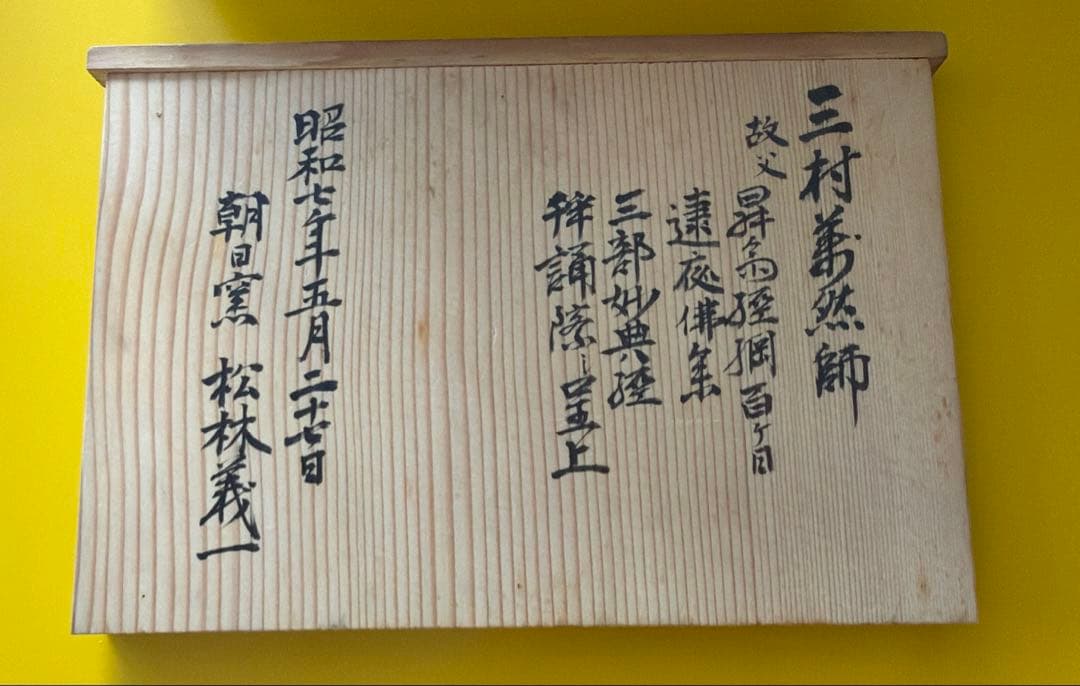 三村義然師
故父昇翁經綱百ヶ日
逮夜佛集
三部妙典經
拜誦際ニ呈上
昭和七年五月二十七日
朝日窯 松林義一